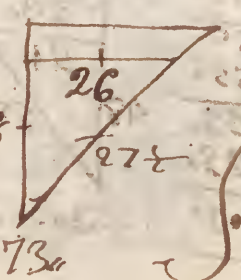 26
27½
73